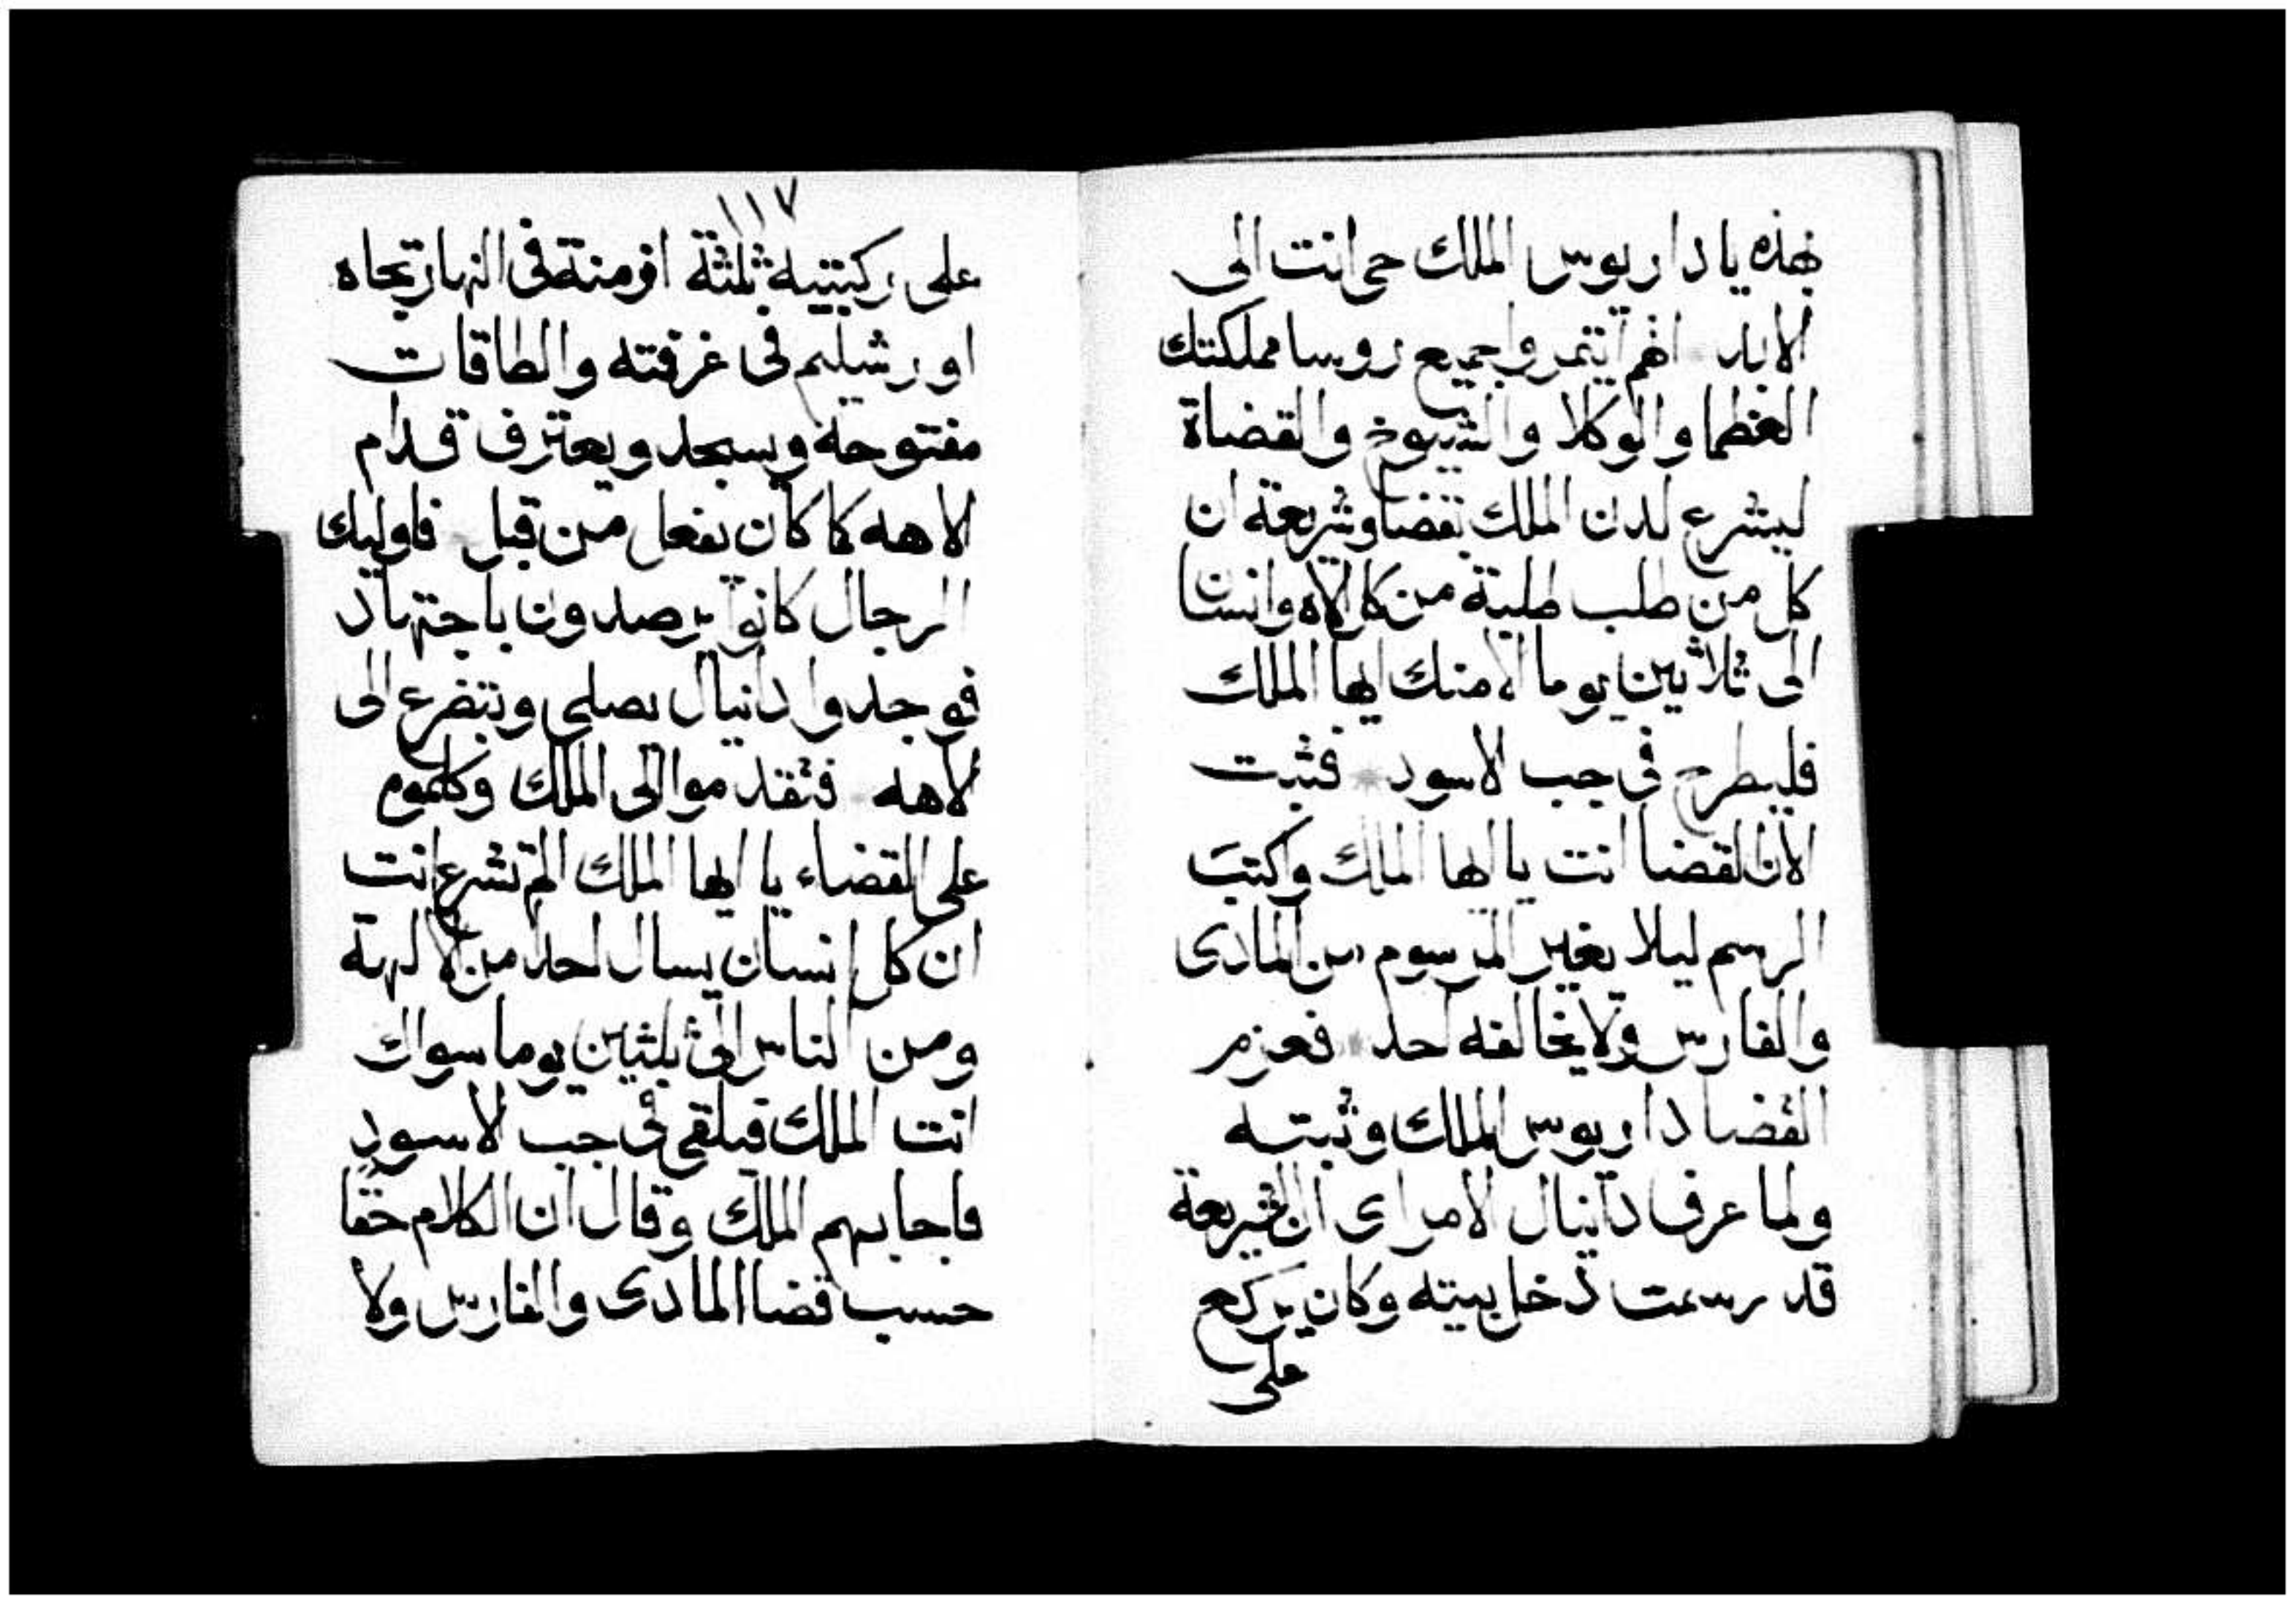 بهذه يا داريوس الملك حى انت الى
الابد انهم ايتمروا جميع روسا مملكتك
العظما والوكلا والشيوخ والقضاة
ليشرع لدن الملك بقضا وشريعة ان
كل من طلب طلبة من كل الاه وانسان
الى ثلاثين يوما الا منك ايها الملك
فليطرح فى جب الاسود فثبت
الان القضا انت يا ايها الملك واكتب
الرسم ليلا يغير المرسوم من المادى
والفارس ولا يخالفه احد فعزم
القضا داريوس الملك وثبته
ولما عرف دانيال الامر اى ان الشريعة
قد رسمت دخل بيته وكان يركع
على
١١٧
على ركبتيه ثلثة ازمنة فى النهار تجاه
اورشليم فى غرفته والطاقات
مفتوحة ويسجد ويعترف قدام
الاهه كما كان يفعل من قبل فاوليك
الرجال كانوا يرصدون باجتهاد
فوجدوا دانيال يصلى ويتضرع الى
لاهه فتقدموا الى الملك وكلموه
على القضاء يا ايها الملك الم تشرع انت
ان كل انسان يسال احدا من الالهة
ومن الناس الى ثلثين يوما سواك
انت الملك فيلقى فى جب لاسود
فاجابهم الملك وقال ان الكلام حقا
حسب قضا المادى والفارس ولا